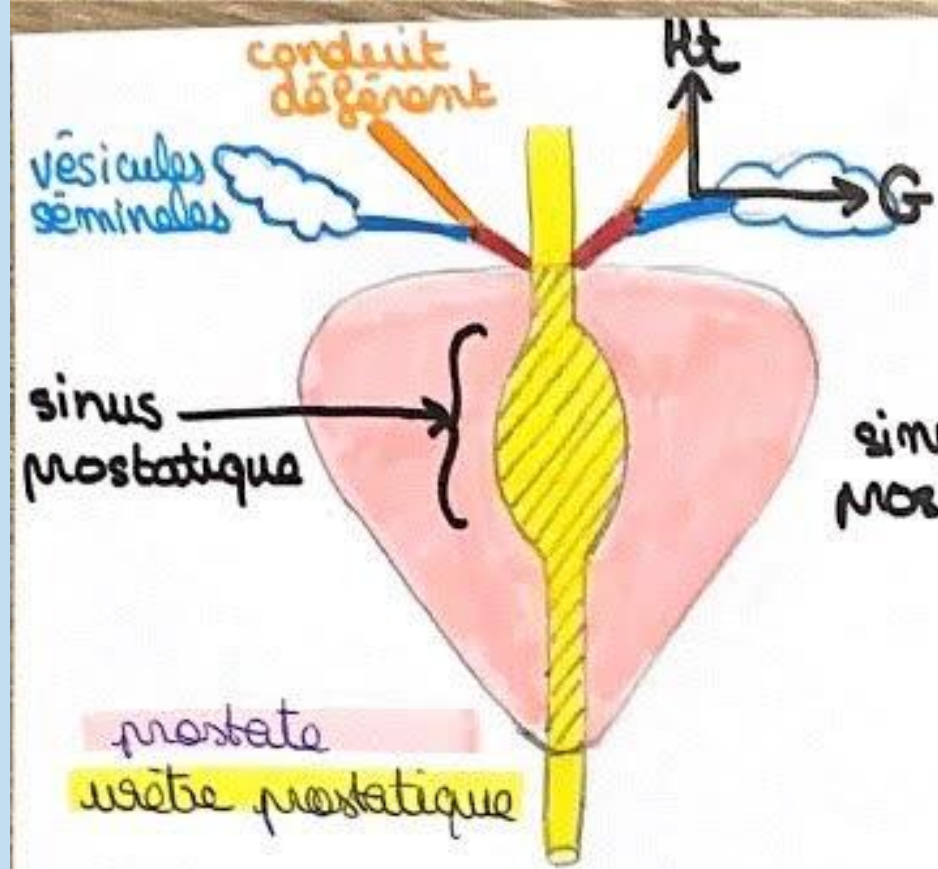 conduit
déférent
Ht
vésicules
séminales
G
sinus
prostatique
prostate
urètre prostatique